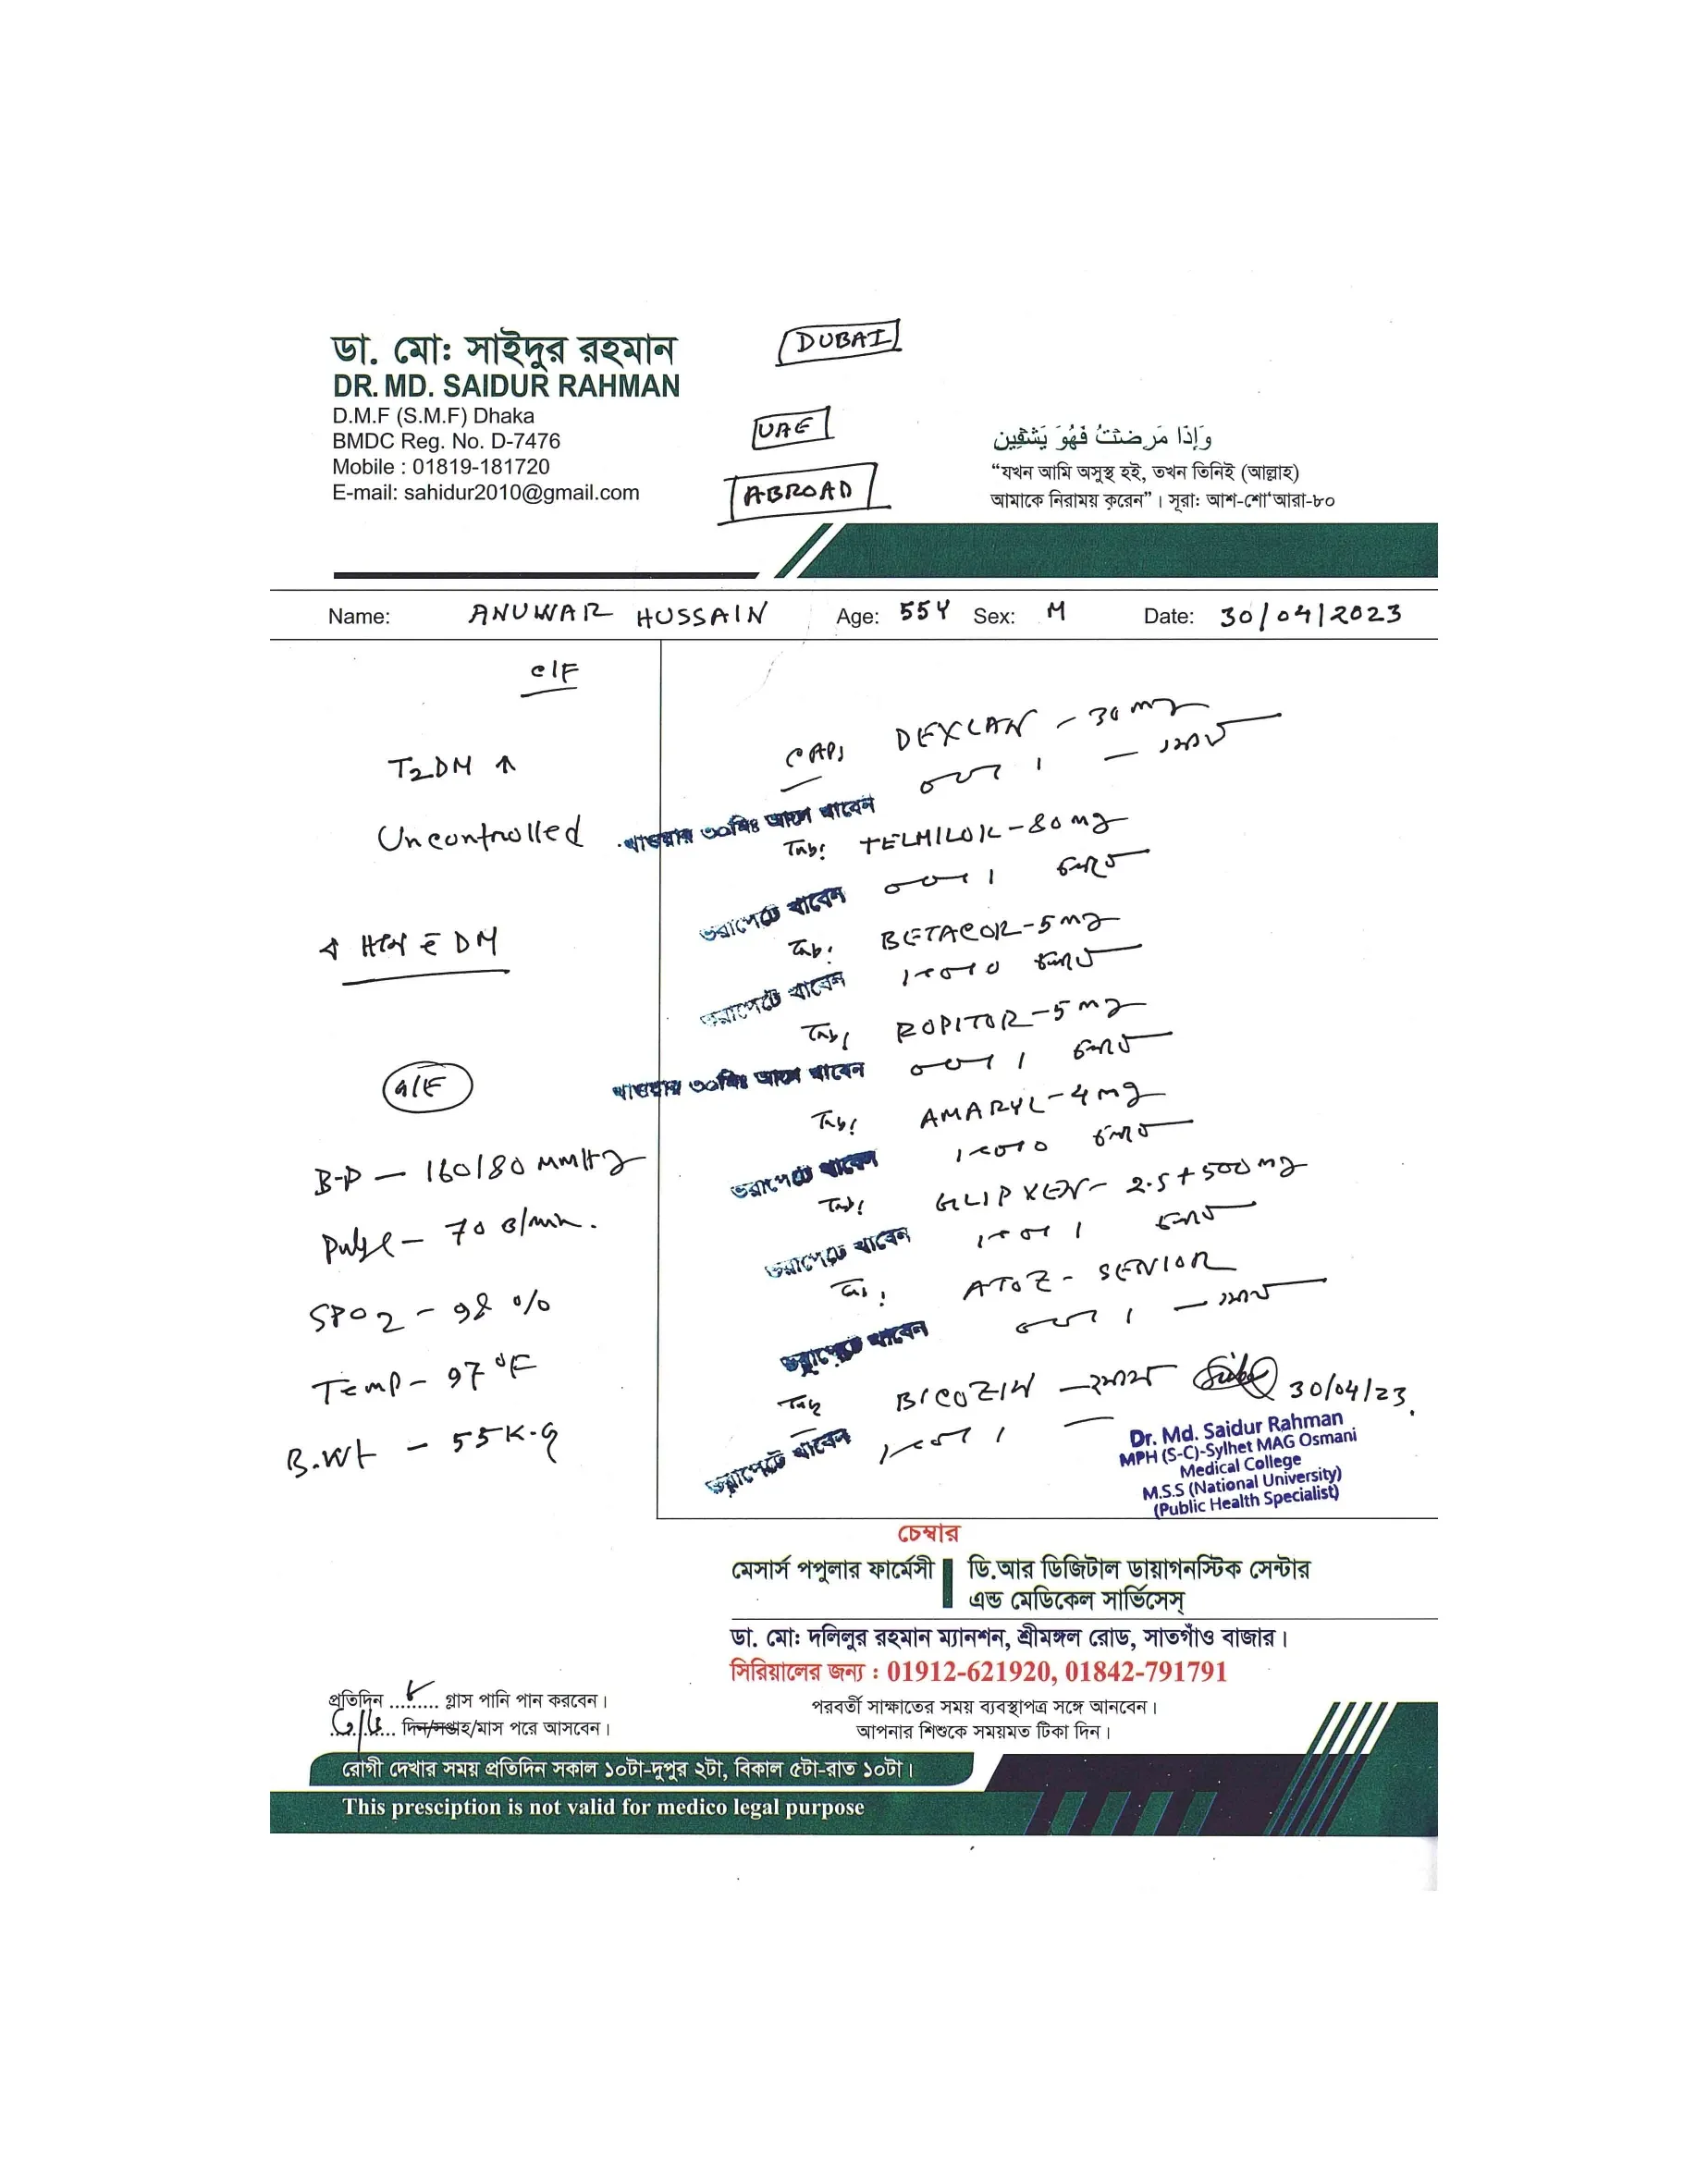 ডা. মোঃ সাইদুর রহমান
DR. MD. SAIDUR RAHMAN
D.M.F (S.M.F) Dhaka
BMDC Reg. No. D-7476
Mobile : 01819-181720
E-mail: sahidur2010@gmail.com
DUBAI
UAE
ABROAD
وَإِذَا مَرِضْتُ فَهُوَ يَشْفِينِ
“যখন আমি অসুস্থ হই, তখন তিনিই (আল্লাহ)
আমাকে নিরাময় করেন”। সূরা: আশ-শো‘আরা-৮০
Name: ANUWAR HUSSAIN Age: 55Y Sex: M Date: 30/04/2023
C/F
T2DM ↑
Uncontrolled
HTN c̄ DM
G/E
B.P – 160/80 mmHg
Pulse – 70 B/min.
SPO2 – 98 %
Temp – 97 °F
B.Wt – 55 K.g
CAP: DEXLAN – 30 mg
০ ০ ১
খাওয়ার ৩০মিঃ আগে খাবেন
Tab: TELMILOK – 80 mg
০ ০ ১ চলবে
ভরাপেটে খাবেন
Tab: BETACOR – 5 mg
১ ০ ০ চলবে
ভরাপেটে খাবেন
Tab: ROPITOR – 5 mg
০ ০ ১ চলবে
খাওয়ার ৩০মিঃ আগে খাবেন
Tab: AMARYL – 4 mg
১ ০ ০ চলবে
ভরাপেটে খাবেন
Tab: GLIPXEN – 2.5 + 500 mg
১ ০ ১ চলবে
ভরাপেটে খাবেন
ATOZ – SENIOR
০ ০ ১
ভরাপেটে খাবেন
Tab BICOZIN
১ ০ ১
ভরাপেটে খাবেন
30/04/23.
Dr. Md. Saidur Rahman
MPH (S-C)-Sylhet MAG Osmani
Medical College
M.S.S (National University)
(Public Health Specialist)
চেম্বার
মেসার্স পপুলার ফার্মেসী
ডি.আর ডিজিটাল ডায়াগনস্টিক সেন্টার
এন্ড মেডিকেল সার্ভিসেস্
ডা. মোঃ দলিলুর রহমান ম্যানশন, শ্রীমঙ্গল রোড, সাতগাঁও বাজার।
সিরিয়ালের জন্য : 01912-621920, 01842-791791
প্রতিদিন ......... গ্লাস পানি পান করবেন।
............ দিন/সপ্তাহ/মাস পরে আসবেন।
পরবর্তী সাক্ষাতের সময় ব্যবস্থাপত্র সঙ্গে আনবেন।
আপনার শিশুকে সময়মত টিকা দিন।
রোগী দেখার সময় প্রতিদিন সকাল ১০টা-দুপুর ২টা, বিকাল ৫টা-রাত ১০টা।
This presciption is not valid for medico legal purpose